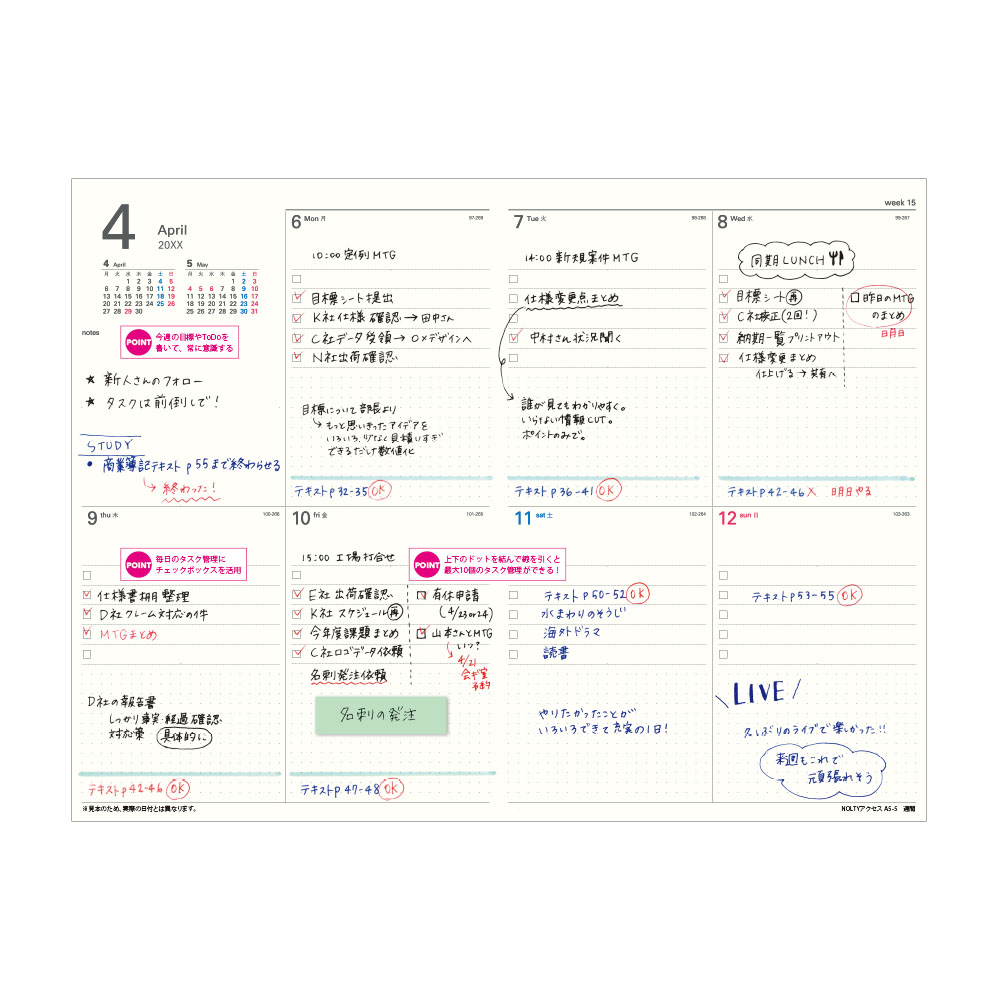 4
April
20XX
4 April
月 火 水 木 金 土 日
1 2 3 4 5
6 7 8 9 10 11 12
13 14 15 16 17 18 19
20 21 22 23 24 25 26
27 28 29 30
5 May
月 火 水 木 金 土 日
1 2 3
4 5 6 7 8 9 10
11 12 13 14 15 16 17
18 19 20 21 22 23 24
25 26 27 28 29 30 31
notes
POINT 今週の目標やToDoを
書いて、常に意識する
★ 新人さんのフォロー
★ タスクは前倒しで!
STUDY
● 商業簿記テキスト p55まで終わらせる
→ 終わった!
6 Mon 月
10:00 定例MTG
目標シート提出
K社仕様確認 → 田中さん
C社データ受領 → ○×デザインへ
N社出荷確認
目標について部長より
→ もっと思いきったアイデアを
いろいろ。
できるだけ数値化
テキストp32-35 OK
7 Tue 火
14:00 新規案件MTG
仕様変更点まとめ
中村さん状況聞く
誰が見てもわかりやすく。
いらない情報CUT。
ポイントのみで。
テキストp36-41 OK
week 15
8 Wed 水
同期LUNCH
目標シート 再
C社校正(2回!)
納期一覧プリントアウト
仕様変更まとめ
仕上げる → 共有へ
昨日のMTG
のまとめ
明日
テキストp42-46 × 明日やる
9 thu 木
POINT 毎日のタスク管理に
チェックボックスを活用
仕様書棚整理
D社クレーム対応の件
MTGまとめ
D社の報告書
しっかり事実・経過確認
対応策 具体的に
テキストp42-46 OK
10 fri 金
15:00 工場打合せ
POINT 上下のドットを結んで線を引くと
最大10個のタスク管理ができる!
E社出荷確認
K社スケジュール 再
今年度課題まとめ
C社ロゴデータ依頼
名刺発注依頼
有休申請
(4/23or24)
山本さんとMTG
いつ?
4/21
会議室
予約
名刺の発注
テキストp47-48 OK
11 sat 土
テキストp50-52 OK
水まわりのそうじ
海外ドラマ
読書
やりたかったことが
いろいろできて充実の1日!
12 sun 日
テキストp53-55 OK
\ LIVE /
久しぶりのライブで楽しかった!!
来週もこれで
頑張れそう
※見本のため、実際の日付とは異なります。
NOLTYアクセス A5-5 週間